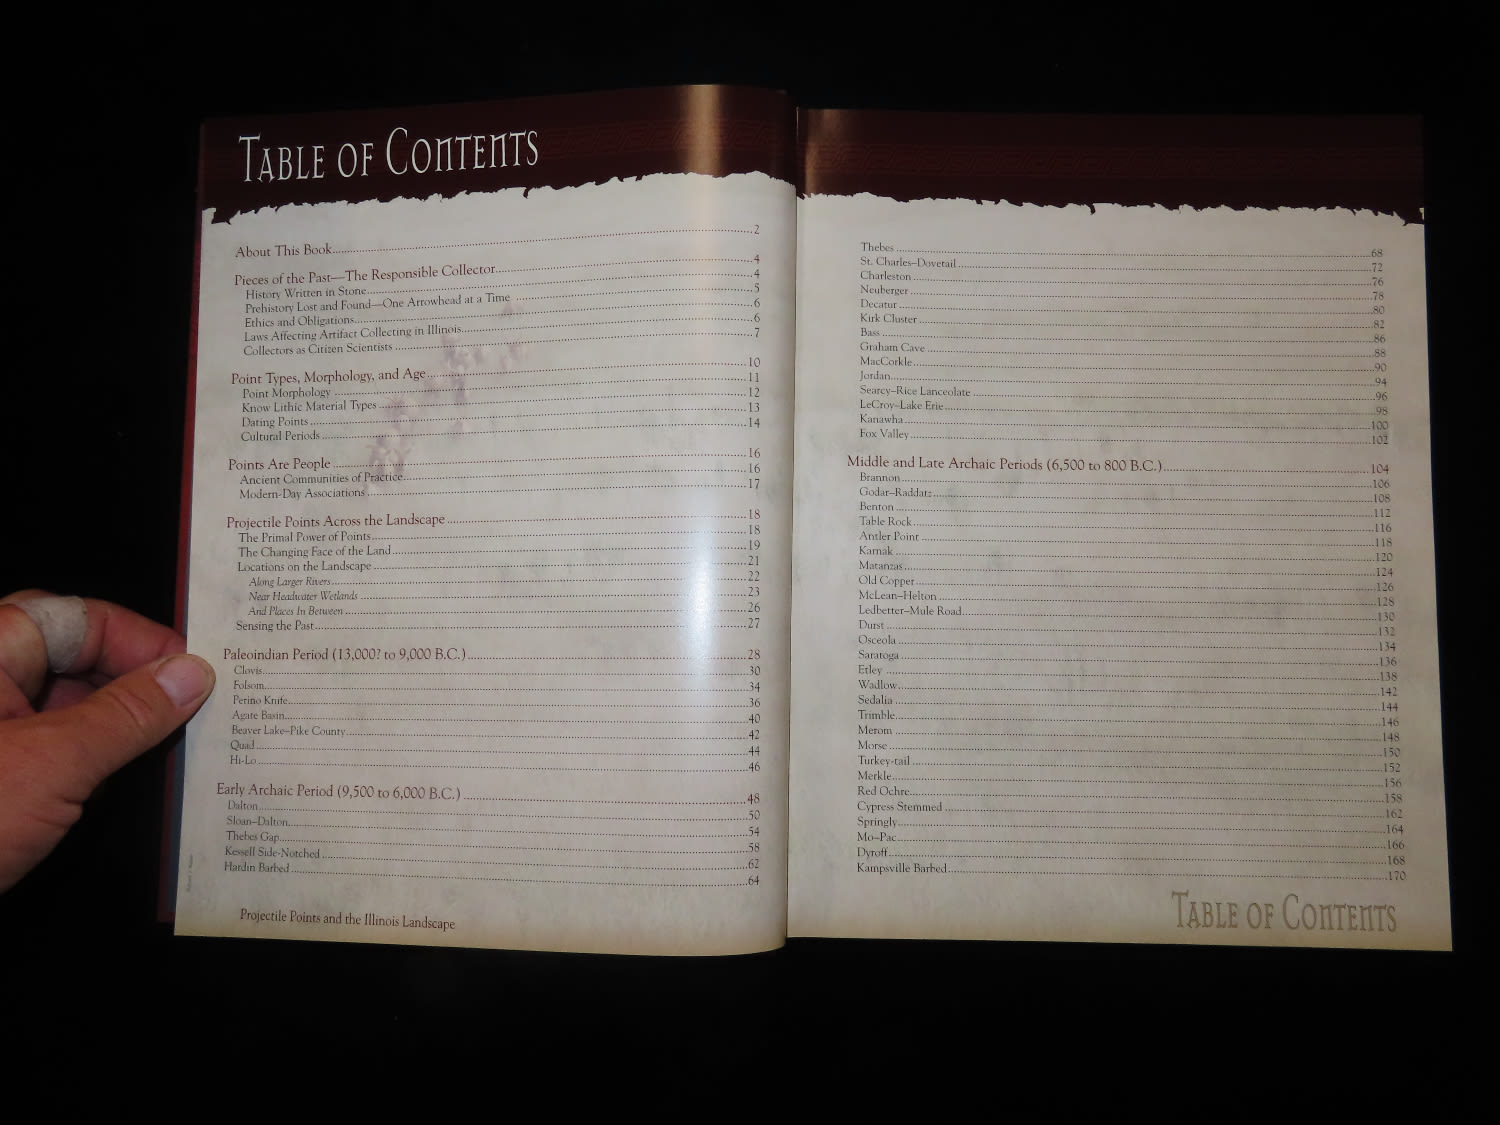 TABLE OF CONTENTS
About This Book 2
Pieces of the Past—The Responsible Collector 4
History Written in Stone 4
Prehistory Lost and Found—One Arrowhead at a Time 5
Ethics and Obligations 6
Laws Affecting Artifact Collecting in Illinois 6
Collectors as Citizen Scientists 7
Point Types, Morphology, and Age 10
Point Morphology 11
Know Lithic Material Types 12
Dating Points 13
Cultural Periods 14
Points Are People 16
Ancient Communities of Practice 16
Modern-Day Associations 17
Projectile Points Across the Landscape 18
The Primal Power of Points 18
The Changing Face of the Land 19
Locations on the Landscape 21
Along Larger Rivers 22
Near Headwater Wetlands 23
And Places In Between 26
Sensing the Past 27
Paleoindian Period (13,000? to 9,000 B.C.) 28
Clovis 30
Folsom 34
Perino Knife 36
Agate Basin 40
Beaver Lake–Pike County 42
Quad 44
Hi-Lo 46
Early Archaic Period (9,500 to 6,000 B.C.) 48
Dalton 50
Sloan–Dalton 54
Thebes Gap 58
Kessell Side-Notched 62
Hardin Barbed 64
Projectile Points and the Illinois Landscape
Thebes 68
St. Charles–Dovetail 72
Charleston 76
Neuberger 78
Decatur 80
Kirk Cluster 82
Bass 86
Graham Cave 88
MacCorkle 90
Jordan 94
Searcy–Rice Lanceolate 96
LeCroy–Lake Erie 98
Kanawha 100
Fox Valley 102
Middle and Late Archaic Periods (6,500 to 800 B.C.) 104
Brannon 106
Godar–Raddatz 108
Benton 112
Table Rock 116
Antler Point 118
Karnak 120
Matanzas 124
Old Copper 126
McLean–Helton 128
Ledbetter–Mule Road 130
Durst 132
Osceola 134
Saratoga 136
Etley 138
Wadlow 142
Sedalia 144
Trimble 146
Merom 148
Morse 150
Turkey-tail 152
Merkle 156
Red Ochre 158
Cypress Stemmed 162
Springly 164
Mo–Pac 166
Dyroff 168
Kampsville Barbed 170
TABLE OF CONTENTS